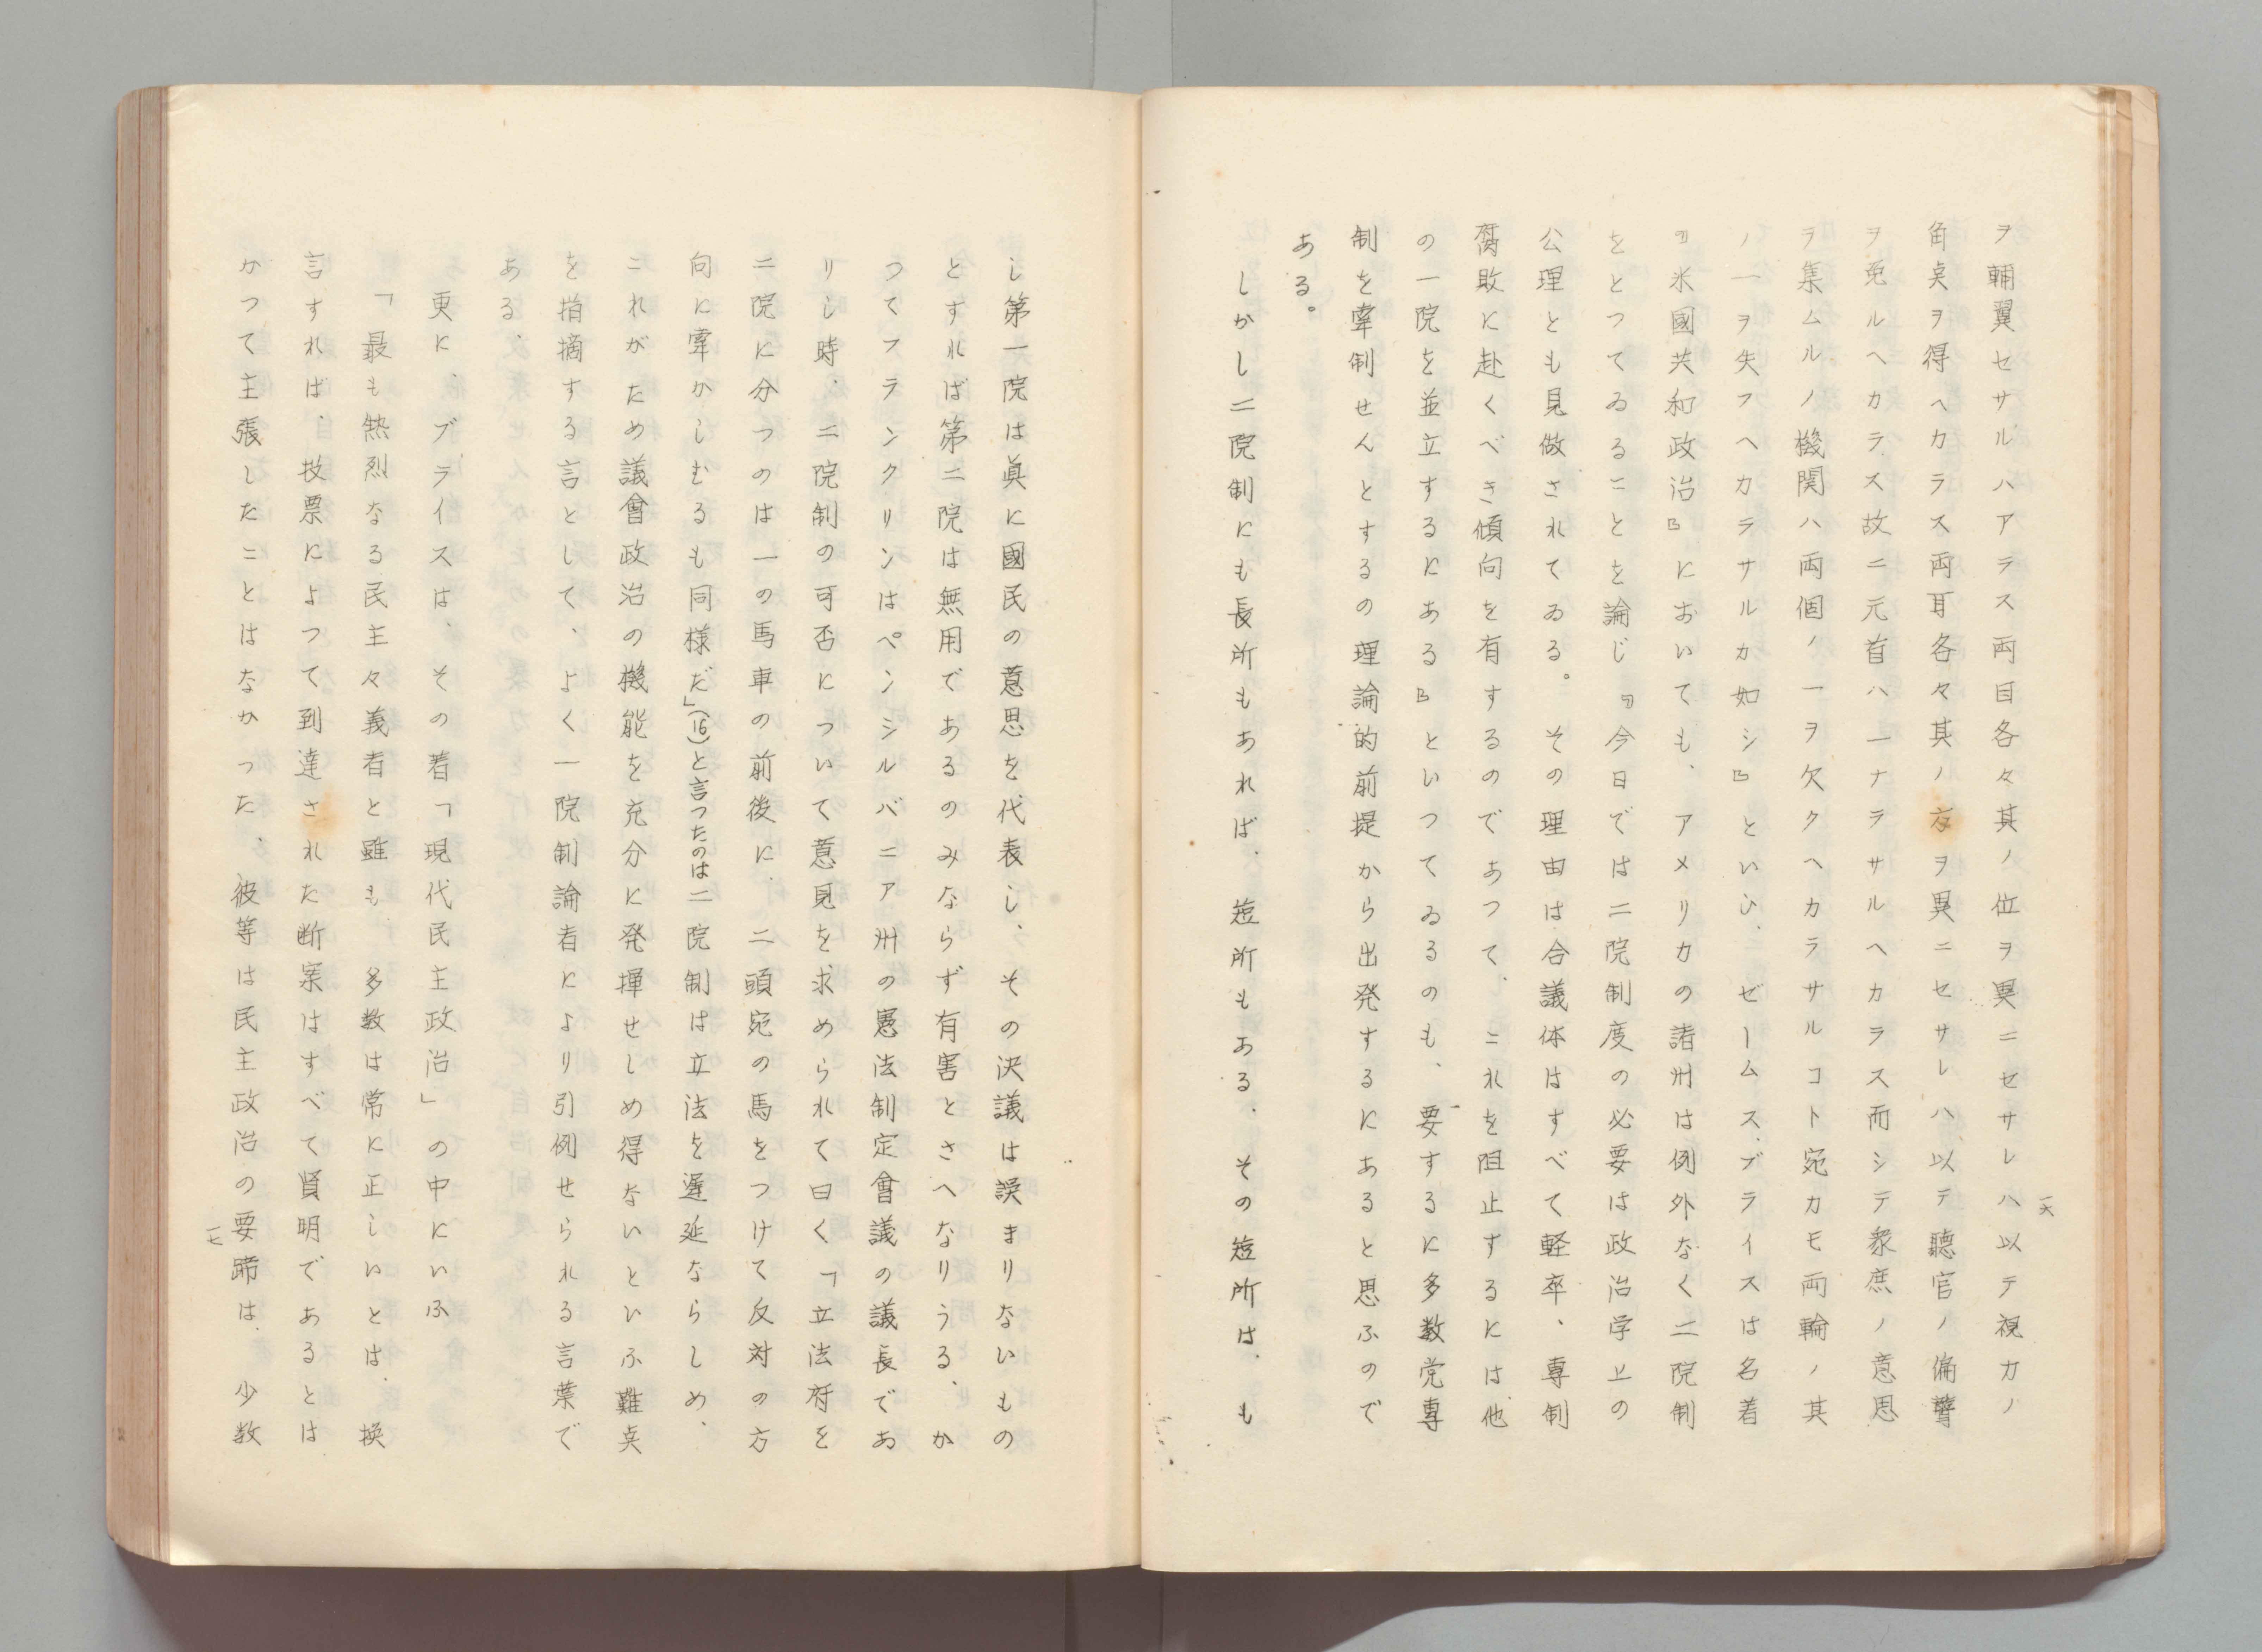 ヲ輔翼セサルハアラス両目各々其ノ位ヲ異ニセサレハ以テ視力ノ
角奌ヲ得ヘカラス両耳各々其ノ方ヲ異ニセサレハ以テ聴官ノ偏聾
ヲ免ルヘカラス故ニ元首ハ一ナラサルヘカラス而シテ衆庶ノ意思
ヲ集ムルノ機関ハ両個ノ一ヲ欠クヘカラサルコト宛カモ両輪ノ其
ノ一ヲ失フヘカラサルカ如シ』といひ、ゼームス、ブライスは名著
『米國共和政治』においても、アメリカの諸州は例外なく二院制
をとつてゐることを論じ『今日では二院制度の必要は政治学上の
公理とも見做されてゐる。その理由は合議体はすべて軽卒、専制
腐敗に赴くべき傾向を有するのであつて、これを阻止するには他
の一院を並立するにある』といつてゐるのも、要するに多数党専
制を牽制せんとするの理論的前提から出発するにあると思ふので
ある。
しかし二院制にも長所もあれば、短所もある、その短所は、も
一六
し第一院は眞に國民の意思を代表し、その決議は誤まりないもの
とすれば第二院は無用であるのみならず有害とさへなりうる、か
つてフランクリンはペンシルバニア州の憲法制定會議の議長であ
りし時、二院制の可否について意見を求められて曰く「立法府を
二院に分つのは一の馬車の前後に、二頭宛の馬をつけて反対の方
向に牽かしむるも同様だ」(16)と言つたのは二院制は立法を遅延ならしめ、
これがため議會政治の機能を充分に発揮せしめ得ないといふ難奌
を指摘する言として、よく一院制論者により引例せられる言葉で
ある、
更に、ブライスは、その著「現代民主政治」の中にいふ
「最も熱烈なる民主々義者と雖も、多数は常に正しいとは、換
言すれば、投票によつて到達された断案はすべて賢明であるとは
かつて主張したことはなかつた、彼等は民主政治の要諦は、少数
一七